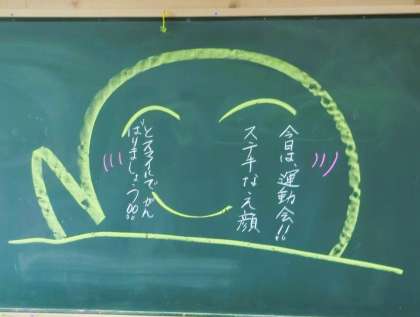 今日は、運動会!!
ステキなえ顔
とスマイルでがん
ばりましょう!!